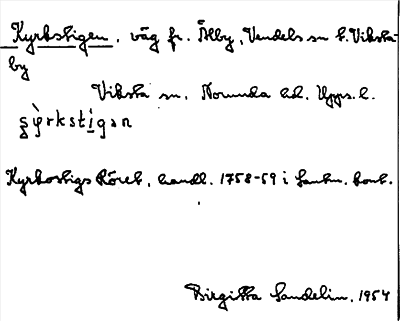 Kyrkstigen, väg fr. Ålby, Vendels sn t. Viksta-
by
Viksta sn, Norunda hd, Upps. l.
Kyrkostigs Röret, handl. 1758-59 i Lantm. kont.
Birgitta Sandelin, 1954